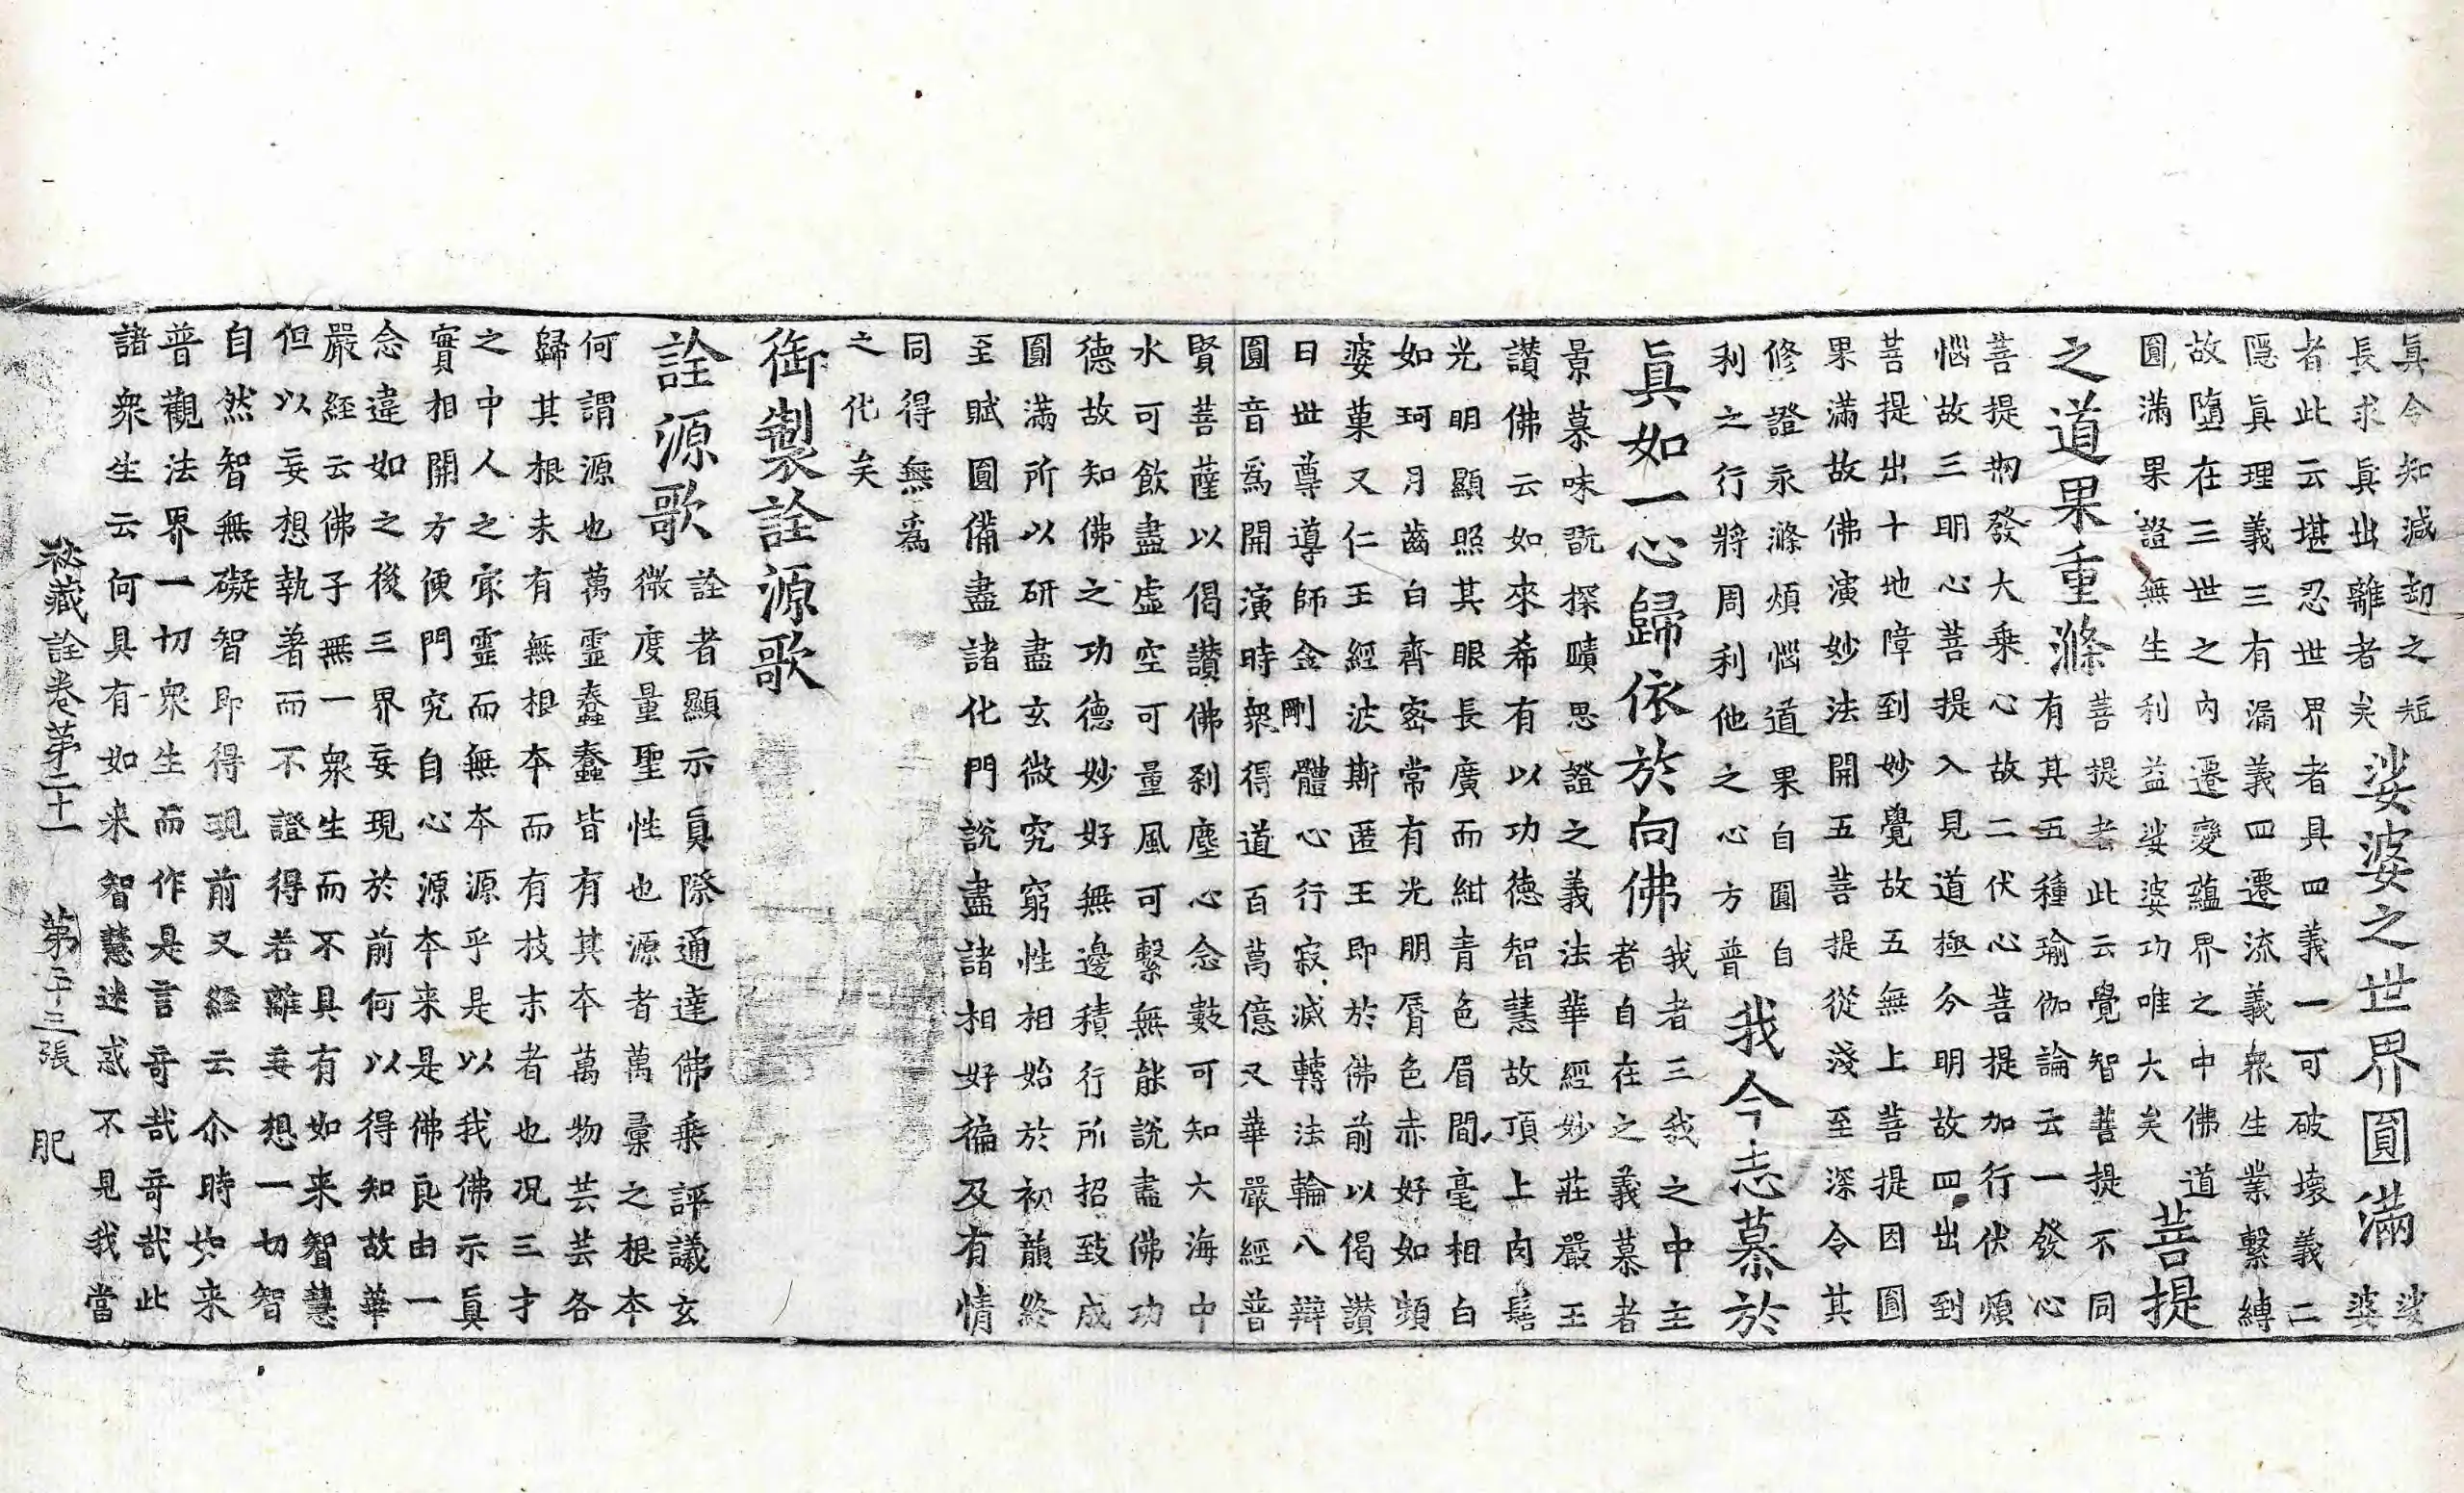 眞今知減劫之短
長求眞出離者矣
娑婆之世界圓滿
娑
婆
者此云堪忍世界者具四義一可破壞義二
隱眞理義三有漏義四遷流義衆生業繫縛
故墮在三世之內遷變蘊界之中佛道
圓滿果證無生利益娑婆功唯大矣
菩提
之道果重滌
菩提者此云覺智菩提不同
有其五種瑜伽論云一發心
菩提初發大乘心故二伏心菩提加行伏煩
惱故三明心菩提入見道極分明故四出到
菩提出十地障到妙覺故五無上菩提因圓
果滿故佛演妙法開五菩提從淺至深令其
修證永滌煩惱道果自圓自
利之行將周利他之心方普
我今志慕於
眞如一心歸依於向佛
我者三我之中主
者自在之義慕者
景慕味翫探賾思證之義法華經妙莊嚴王
讃佛云如來希有以功德智慧故頂上肉髻
光明顯照其眼長廣而紺青色眉間毫相白
如珂月齒白齊密常有光明脣色赤好如頻
婆菓又仁王經波斯匿王即於佛前以偈讃
曰世尊導師金剛體心行寂滅轉法輪八辯
圓音爲開演時衆得道百萬億又華嚴經普
賢菩薩以偈讃佛刹塵心念數可知大海中
水可飲盡虛空可量風可繫無能說盡佛功
德故知佛之功德妙好無邊積行所招致成
圓滿所以研盡玄微究窮性相始於初韻終
至賦圓備盡諸化門說盡諸相好徧及有情
同得無爲
之化矣
御製詮源歌
詮源歌
詮者顯示眞際通達佛乘評議玄
微度量聖性也源者萬彙之根本
何謂源也萬靈蠢蠢皆有其本萬物芸芸各
歸其根未有無根本而有枝末者也况三才
之中人之㝡靈而無本源乎是以我佛示眞
實相開方便門究自心源本来是佛良由一
念違如之後三界妄現於前何以得知故華
嚴經云佛子無一衆生而不具有如来智慧
但以妄想執著而不證得若離妄想一切智
自然智無礙智即得現前又經云尒時如来
普觀法界一切衆生而作是言奇哉奇哉此
諸衆生云何具有如来智慧迷惑不見我當
秘藏詮卷第二十一　第二十三張　肥